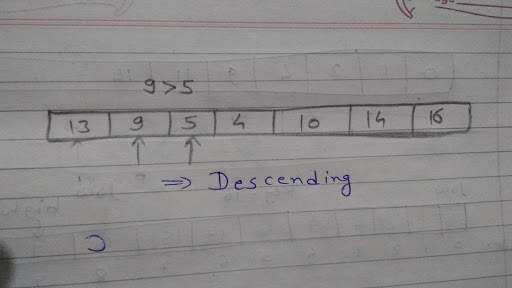 9>5
13 9 5 4 10 14 16
⇒ Descending